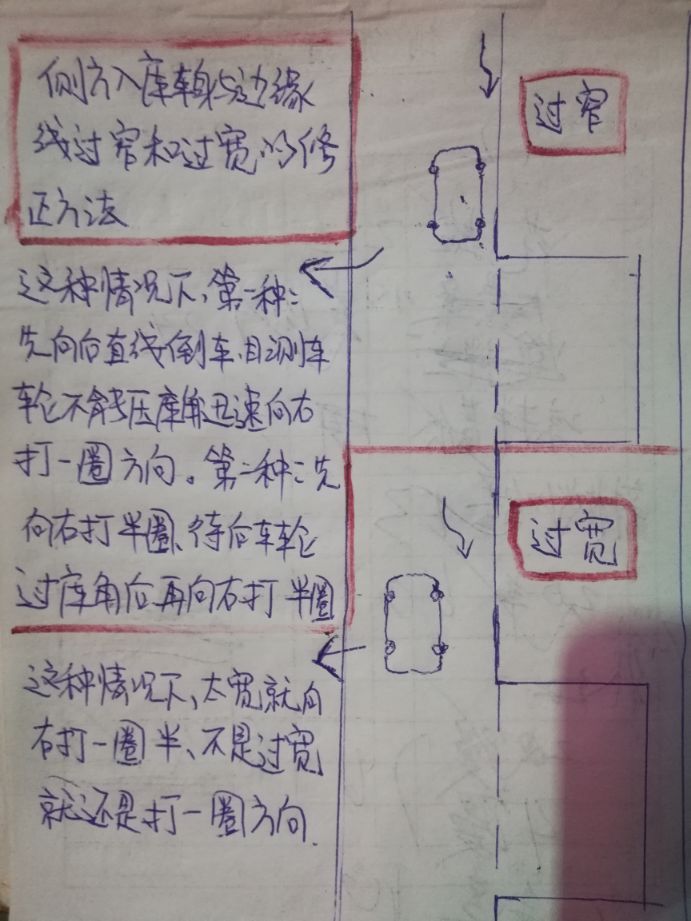 侧方入库车身与边缘
线过窄和过宽的修
正方法
过窄
这种情况下、第一种：
先向后直线倒车、目测车
轮不能考压库角迅速向右
打一圈方向。第二种：先
向右打半圈、待后车轮
过库角后再向右打半圈
过宽
这种情况下、太宽就向
右打一圈半、不是过宽
就还是打一圈方向.